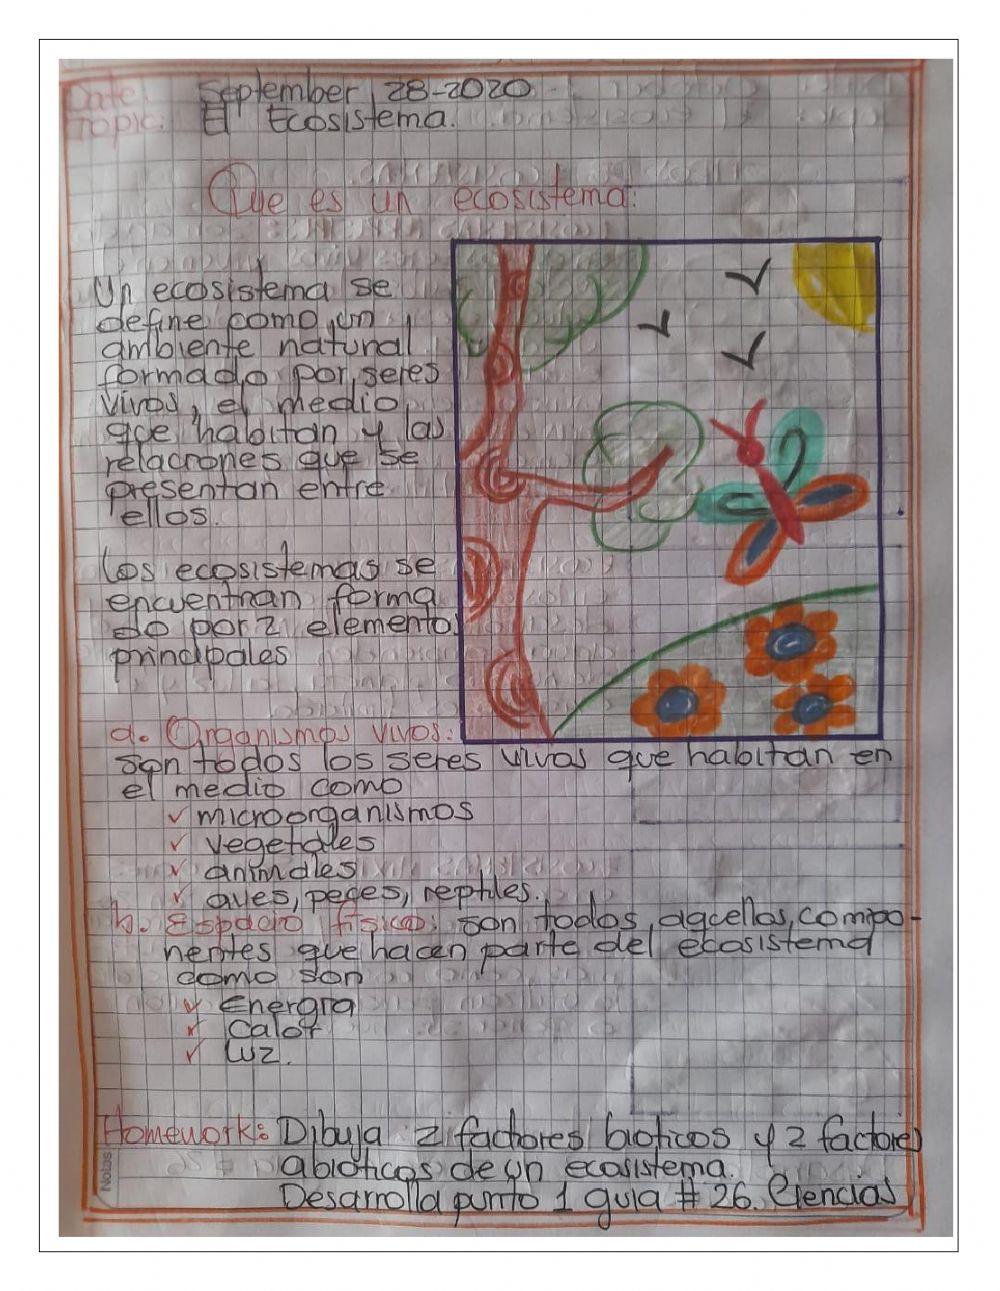 Date: September 28-2020
Topic: El Ecosistema.
Que es un ecosistema:
Un ecosistema se
define como un
ambiente natural
formado por seres
vivos, el medio
que habitan y las
relaciones que se
presentan entre
ellos.
Los ecosistemas se
encuentran forma
do por 2 elemento
principales
a. Organismos vivos:
son todos los seres vivos que habitan en
el medio como
✓ microorganismos
✓ vegetales
✓ animales
✓ aves, peces, reptiles.
b. Espacio físico: son todos aquellos compo-
nentes que hacen parte del ecosistema
como son
✓ Energía
✓ Calor
✓ Luz.
Homework: Dibuja 2 factores bioticos y 2 factores
abióticos de un ecosistema.
Desarrolla punto 1 guia # 26. Ciencias
Notas